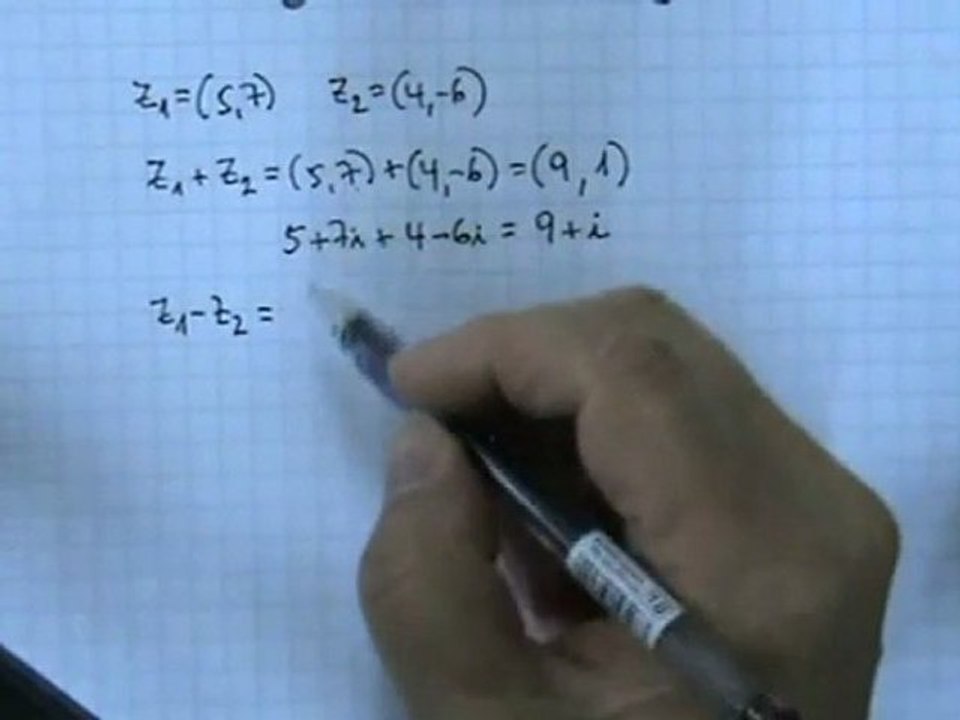 z₁=(5,7) z₂=(4,-6)
z₁+z₂=(5,7)+(4,-6)=(9,1)
5+7i+4-6i=9+i
z₁-z₂=